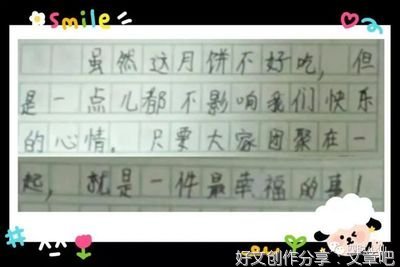 smile
虽然这月饼不好吃，但
是一点儿都不影响我们快乐
的心情。只要大家团聚在一
起，就是一件最幸福的事！
好文创作分享·文章吧